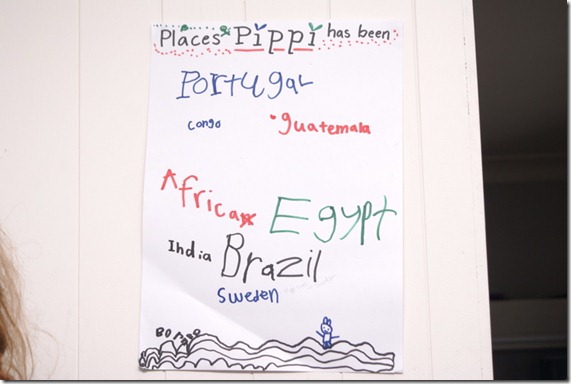 Places Pippi has been
Portugal
Congo
guatemala
Africa
Egypt
India
Brazil
Sweden